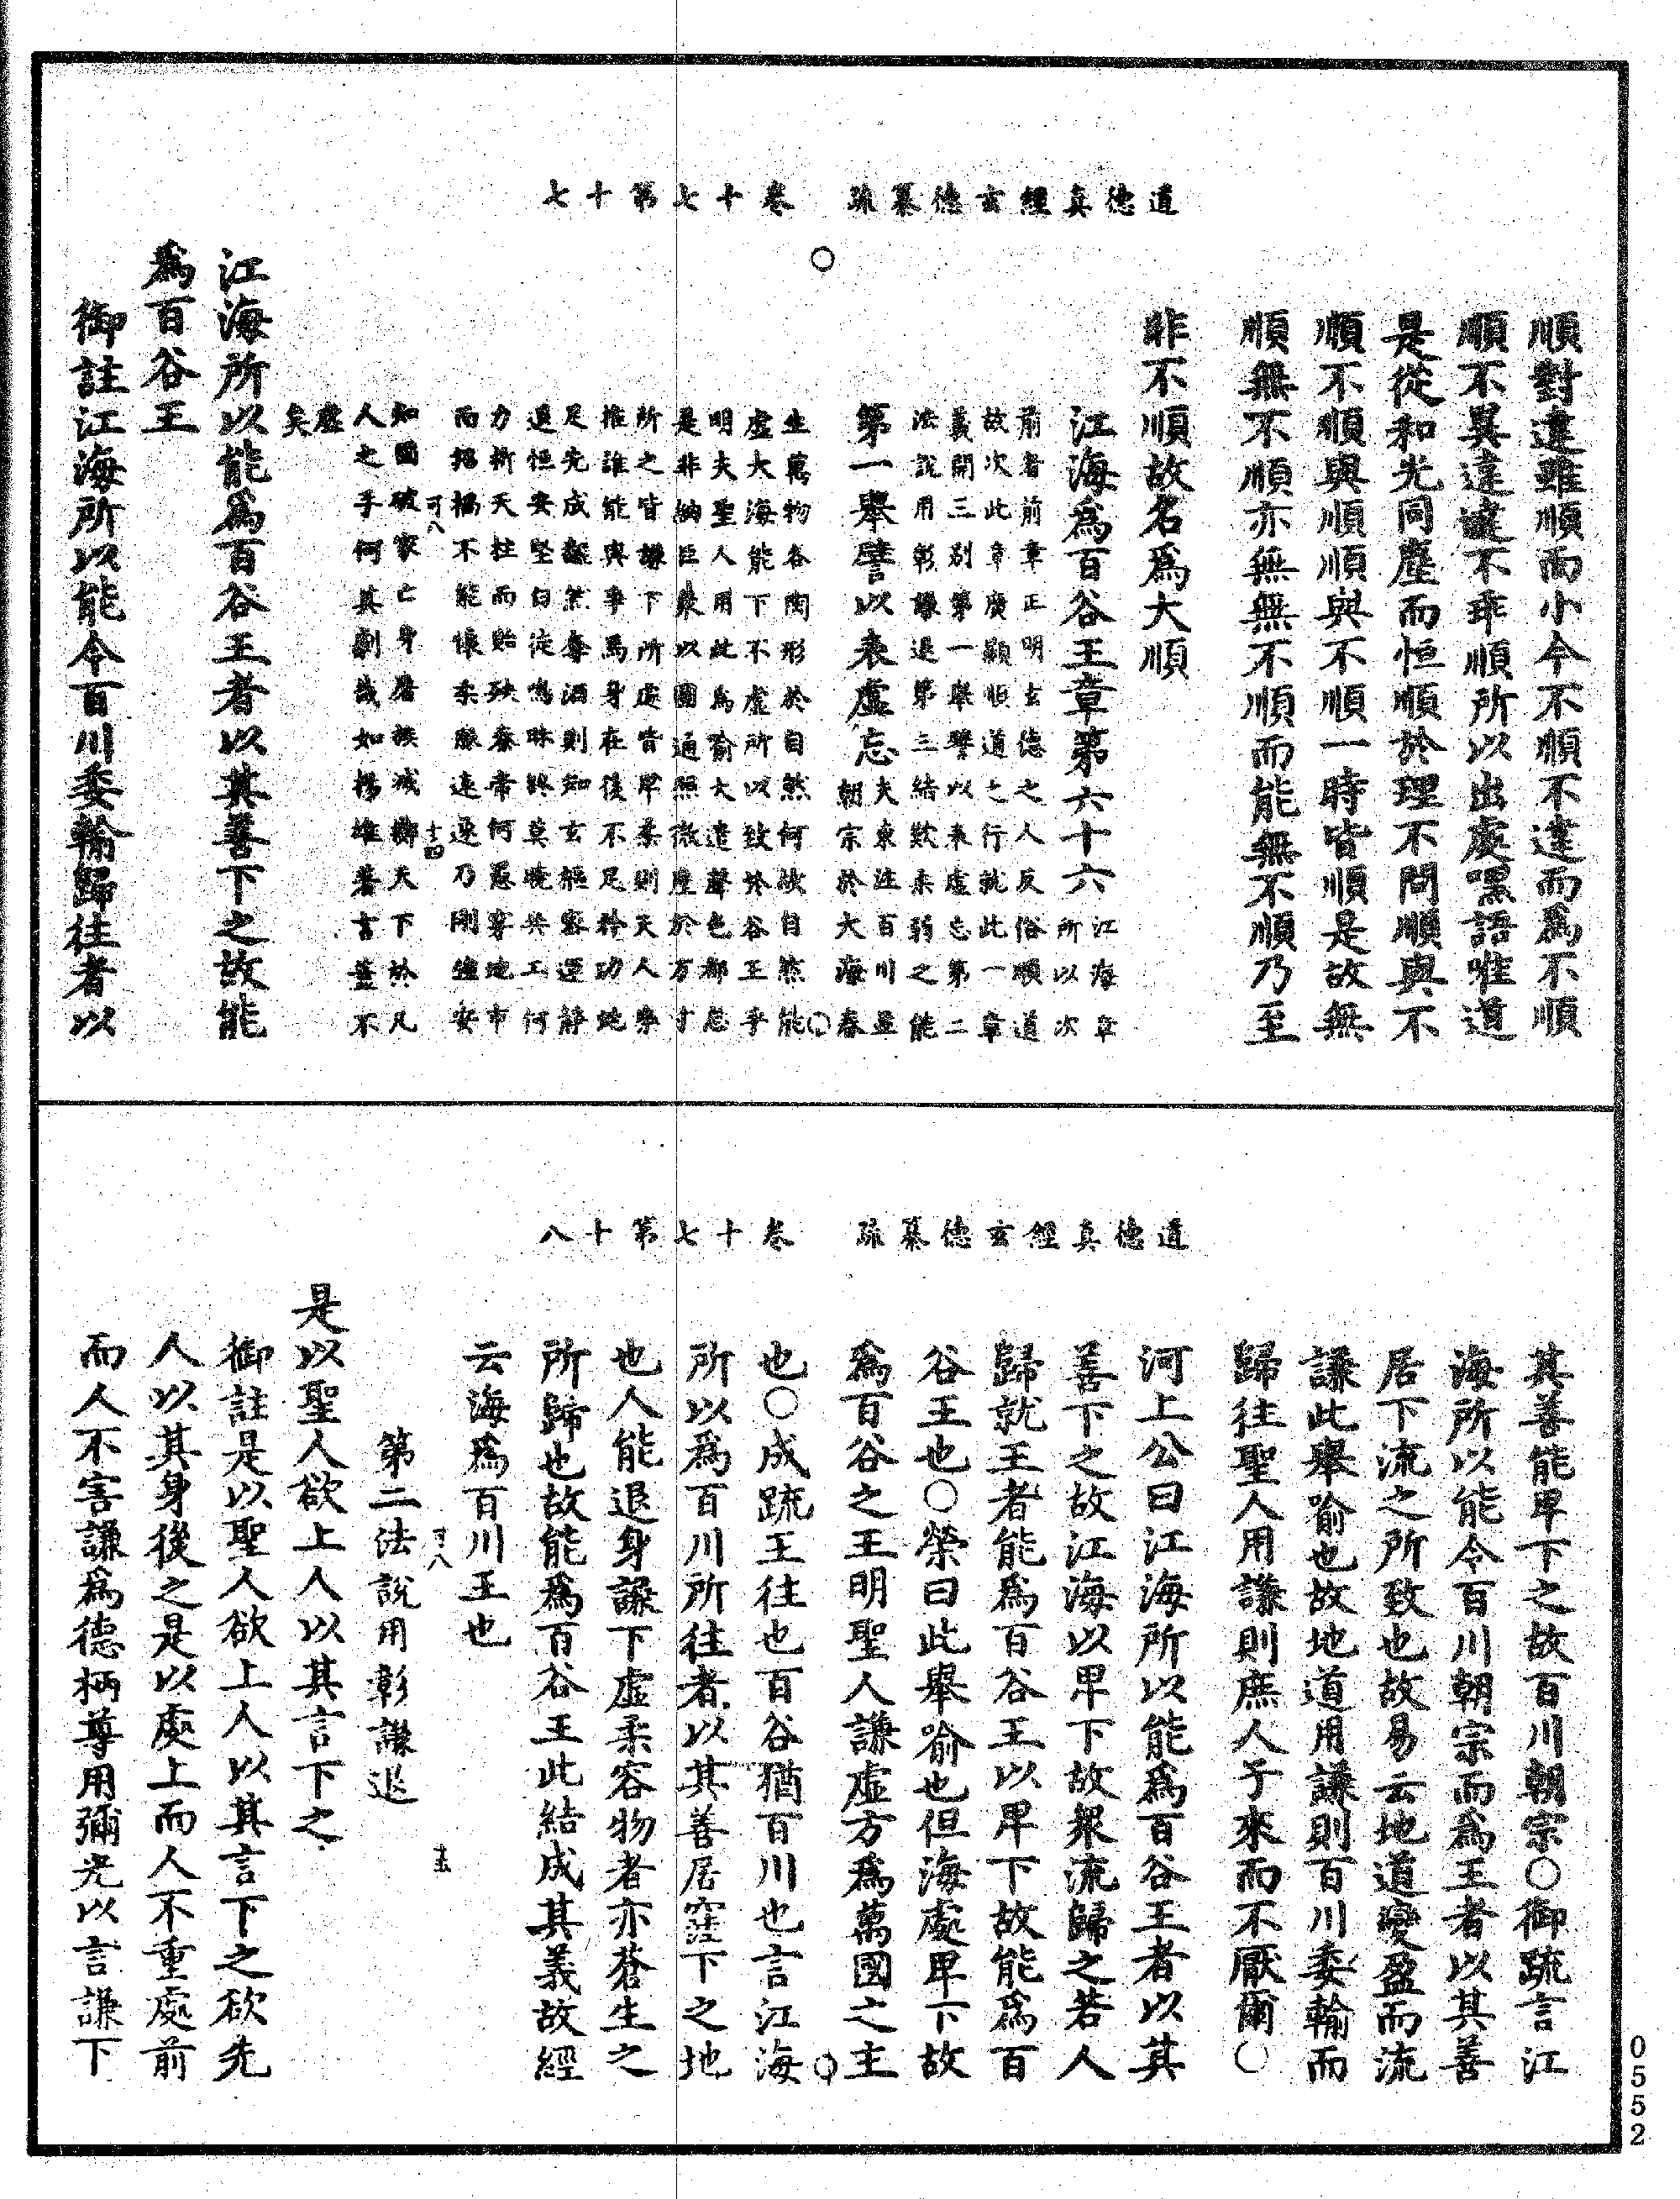 道德真經玄德纂疏　卷十七第十七
順對違雖順而小今不順不違而爲不順
順不異違違不乖順所以出處嘿語唯道
是從和光同塵而恒順於理不問順與不
順不順與順順與不順一時皆順是故無
順無不順亦無無不順而能無不順乃至
非不順故名爲大順
江海爲百谷王章第六十六江海章
所以次
前者前章正明玄德之人反俗順道
故次此章廣顯順道之行就此一章
義開三別第一舉譬以表虛忘第二
法說用彰謙退第三結歎柔弱之能
第一舉譬以表虛忘夫東注百川並
朝宗於大海春
生萬物各陶形於自然何故自然能
虛大海能下不虛所以致於谷王乎
明夫聖人用此爲喻大遣聲色都忘
是非納巨衆以圓通照微塵於方寸
所之皆謙下所處皆卑柔則天人樂
推誰能與爭焉身在後不足矜功地
足先成礙然奪酒則知玄樞寂運靜
退恒安堅白徒鳴昧終莫曉共工何
力折天柱而貽殃秦帝何愚穿地市
而招禍不能懷柔服遠遂乃剛強安
可八　十四
知國破家亡身屠族滅擲天下於凡
人之手何其劇哉如楊雄著言蓋不
虛
矣
江海所以能爲百谷王者以其善下之故能
爲百谷王
御註江海所以能令百川委輸歸往者以
道德真經玄德纂疏　卷十七第十八
其善能卑下之故百川朝宗○御疏言江
海所以能令百川朝宗而爲王者以其善
居下流之所致也故易云地道變盈而流
謙此舉喻也故地道用謙則百川委輸而
歸往聖人用謙則庶人子來而不厭爾○
河上公曰江海所以能爲百谷王者以其
善下之故江海以卑下故衆流歸之若人
歸就王者能爲百谷王以卑下故能爲百
谷王也○榮曰此舉喻也但海處卑下故
爲百谷之王明聖人謙虛方爲萬國之主
也○成疏王往也百谷猶百川也言江海
所以爲百川所往者以其善居窪下之地
也人能退身謙下虛柔容物者亦蒼生之
所歸也故能爲百谷王此結成其義故經
云海爲百川王也
可八　十五
第二法說用彰謙退
是以聖人欲上人以其言下之
御註是以聖人欲上人以其言下之欲先
人以其身後之是以處上而人不重處前
而人不害謙爲德柄尊用彌光以言謙下
0552